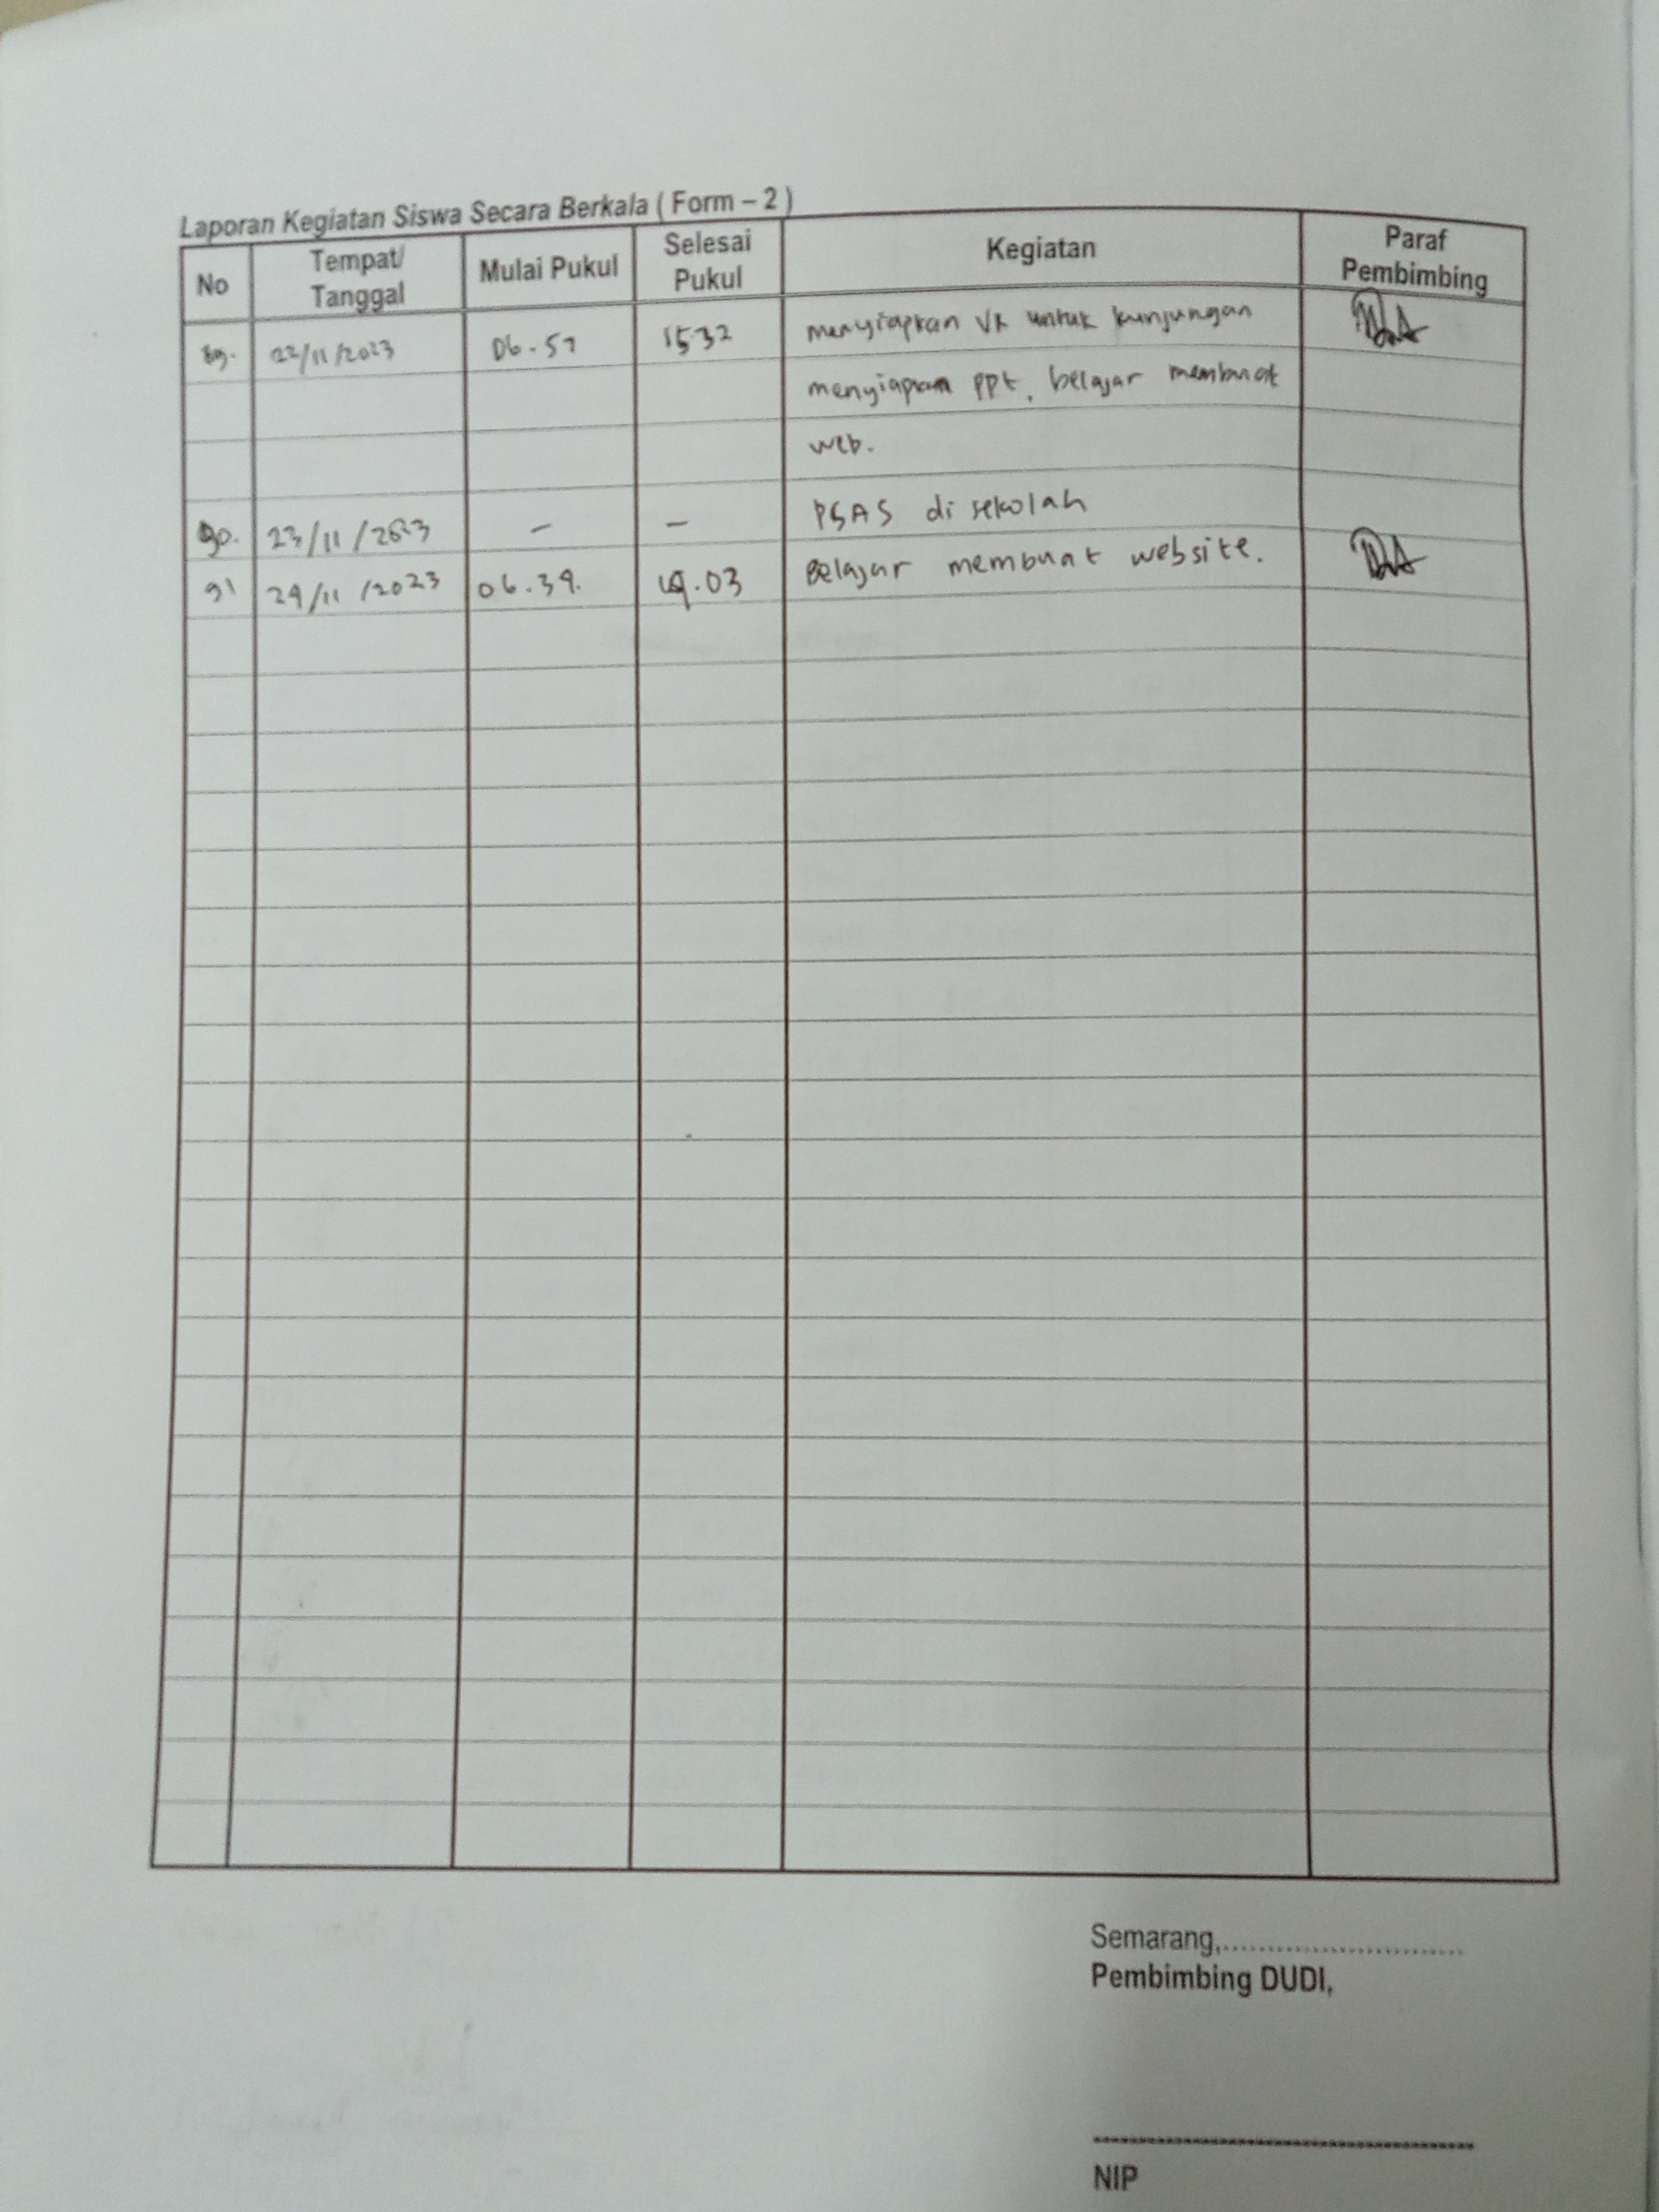 Laporan Kegiatan Siswa Secara Berkala ( Form – 2 )
No Tempat/ Tanggal Mulai Pukul Selesai Pukul Kegiatan Paraf Pembimbing
89. 22/11/2023 06.57 15.32 menyiapkan VR untuk kunjungan
menyiapkan ppt, belajar membuat
web.
90. 23/11/2023 – – PSAS di sekolah
91 24/11/2023 06.39. .03 Belajar membuat website.
Semarang,..............................
Pembimbing DUDI,
NIP